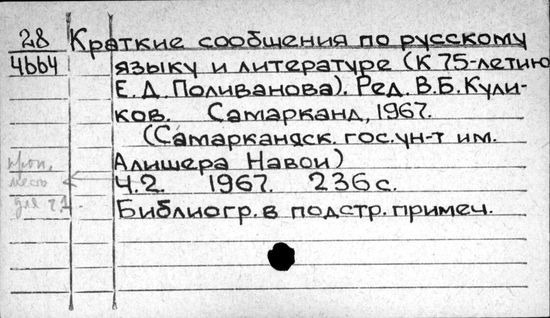 28
4664
Краткие сообщения по русскому
языку и литературе (К 75-летию
Е. Д. Поливанова). Ред. В. Б. Кули-
ков. Самарканд, 1967.
(Самаркандск. гос. ун-т им.
Алишера Навои)
Ч. 2. 1967. 236 с.
Библиогр. в подстр. примеч.
для ч. 1